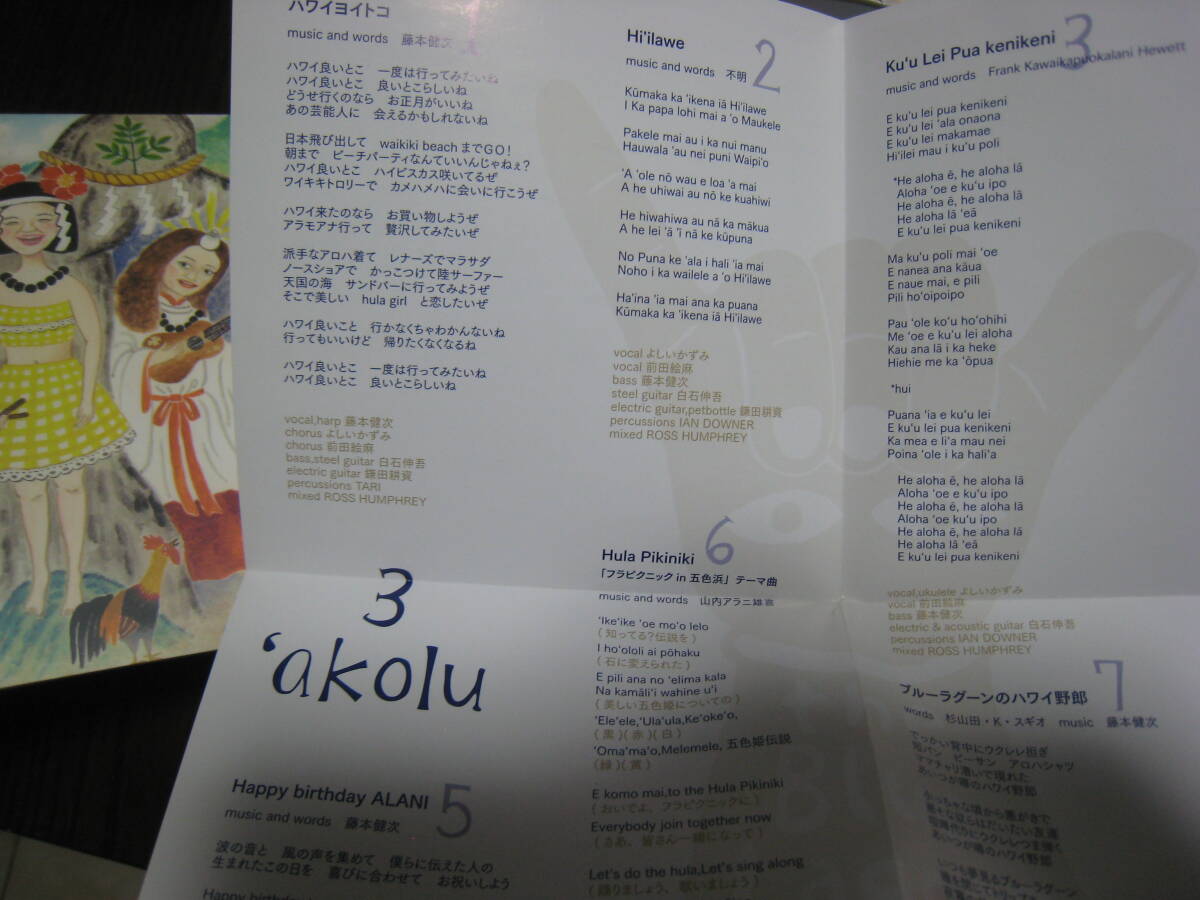 ハワイヨイトコ
music and words 藤本健次
ハワイ良いとこ 一度は行ってみたいね
ハワイ良いとこ 良いとこらしいね
どうせ行くのなら お正月がいいね
あの芸能人に 会えるかもしれないね
日本飛び出して waikiki beach までGO!
朝まで ビーチパーティなんていいんじゃねぇ?
ハワイ良いとこ ハイビスカス咲いてるぜ
ワイキキトロリーで カメハメハに会いに行こうぜ
ハワイ来たのなら お買い物しようぜ
アラモアナ行って 贅沢してみたいぜ
派手なアロハ着て レナーズでマラサダ
ノースショアで かっこつけて陸サーファー
天国の海 サンドバーに行ってみようぜ
そこで美しい hula girl と恋したいぜ
ハワイ良いこと 行かなくちゃわかんないね
行ってもいいけど 帰りたくなくなるね
ハワイ良いとこ 一度は行ってみたいね
ハワイ良いとこ 良いとこらしいね
vocal,harp 藤本健次
chorus よしいかずみ
chorus 前田絵麻
bass,steel guitar 白石伸吾
electric guitar 鎌田耕資
percussions TARI
mixed ROSS HUMPHREY
Hi'ilawe 2
music and words 不明
Kūmaka ka 'ikena iā Hi'ilawe
I Ka papa lohi mai a 'o Maukele
Pakele mai au i ka nui manu
Hauwala 'au nei puni Waipi'o
'A 'ole nō wau e loa 'a mai
A he uhiwai au nō ke kuahiwi
He hiwahiwa au nā ka mākua
A he lei 'ā 'ī nā ke kūpuna
No Puna ke 'ala i hali 'ia mai
Noho i ka wailele a 'o Hi'ilawe
Ha'ina 'ia mai ana ka puana
Kūmaka ka 'ikena iā Hi'ilawe
vocal よしいかずみ
vocal 前田絵麻
bass 藤本健次
steel guitar 白石伸吾
electric guitar,petbottle 鎌田耕資
percussions IAN DOWNER
mixed ROSS HUMPHREY
Ku'u Lei Pua kenikeni 3
music and words Frank Kawaikapuokalani Hewett
E ku'u lei pua kenikeni
E ku'u lei 'ala onaona
E ku'u lei makamae
Hi'ilei mau i ku'u poli
*He aloha ē, he aloha lā
Aloha 'oe e ku'u ipo
He aloha ē, he aloha lā
He aloha lā 'eā
E ku'u lei pua kenikeni
Ma ku'u poli mai 'oe
E nanea ana kāua
E naue mai, e pili
Pili ho'oipoipo
Pau 'ole ko'u ho'ohihi
Me 'oe e ku'u lei aloha
Kau ana lā i ka heke
Hiehie me ka 'ōpua
*hui
Puana 'ia e ku'u lei
E ku'u lei pua kenikeni
Ka mea e li'a mau nei
Poina 'ole i ka hali'a
He aloha ē, he aloha lā
Aloha 'oe e ku'u ipo
He aloha ē, he aloha lā
Aloha 'oe e ku'u ipo
He aloha ē, he aloha lā
He aloha lā 'eā
E ku'u lei pua kenikeni
vocal,ukulele よしいかずみ
vocal 前田絵麻
bass 藤本健次
electric & acoustic guitar 白石伸吾
percussions IAN DOWNER
mixed ROSS HUMPHREY
3
'akolu
Happy birthday ALANI 5
music and words 藤本健次
波の音と 風の声を集めて 僕らに伝えた人の
生まれたこの日を 喜びに合わせて お祝いしよう
Happy birthday
Hula Pikiniki 6
「フラピクニック in 五色浜」テーマ曲
music and words 山内アラニ雄喜
'Ike'ike 'oe mo'o lelo
(知ってる?伝説を)
I ho'ololi ai pōhaku
(石に変えられた)
E pili ana no 'elima kala
Na kamāli'i wahine u'i
(美しい五色姫についての)
'Ele'ele,'Ula'ula,Ke'oke'o,
(黒)(赤)(白)
'Oma'ma'o,Melemele, 五色姫伝説
(緑)(黄)
E komo mai,to the Hula Pikiniki
(おいでよ、フラピクニックに)
Everybody join together now
(さあ、皆さん一緒になって)
Let's do the hula,Let's sing along
(踊りましょう、歌いましょう)
ブルーラグーンのハワイ野郎 7
words 杉山田・K・スギオ music 藤本健次
でっかい背中にウクレレ担ぎ
短パン ビーサン アロハシャツ
ママチャリ漕いで現れた
あいつが噂のハワイ野郎
ちっちゃな頃から悪がきで
あいつが噂のハワイ野郎
いつも夢見るブルーラグーン